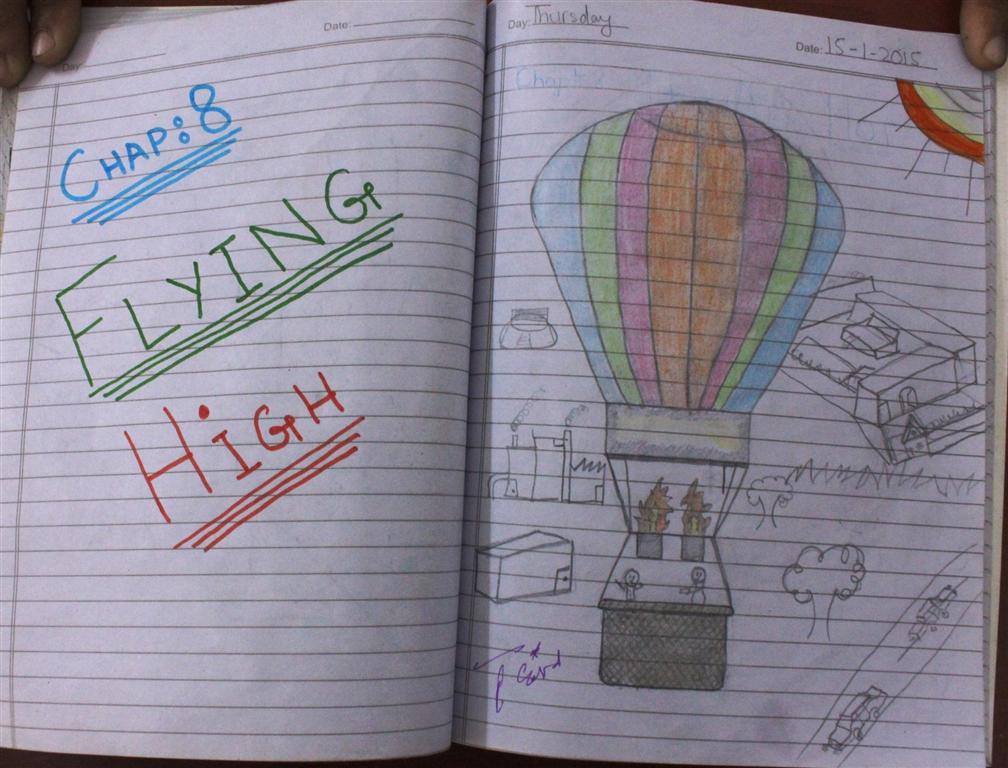 Date:
Day
CHAP:8
FLYING
HiGH
Day: Thursday
Date: 15-1-2015